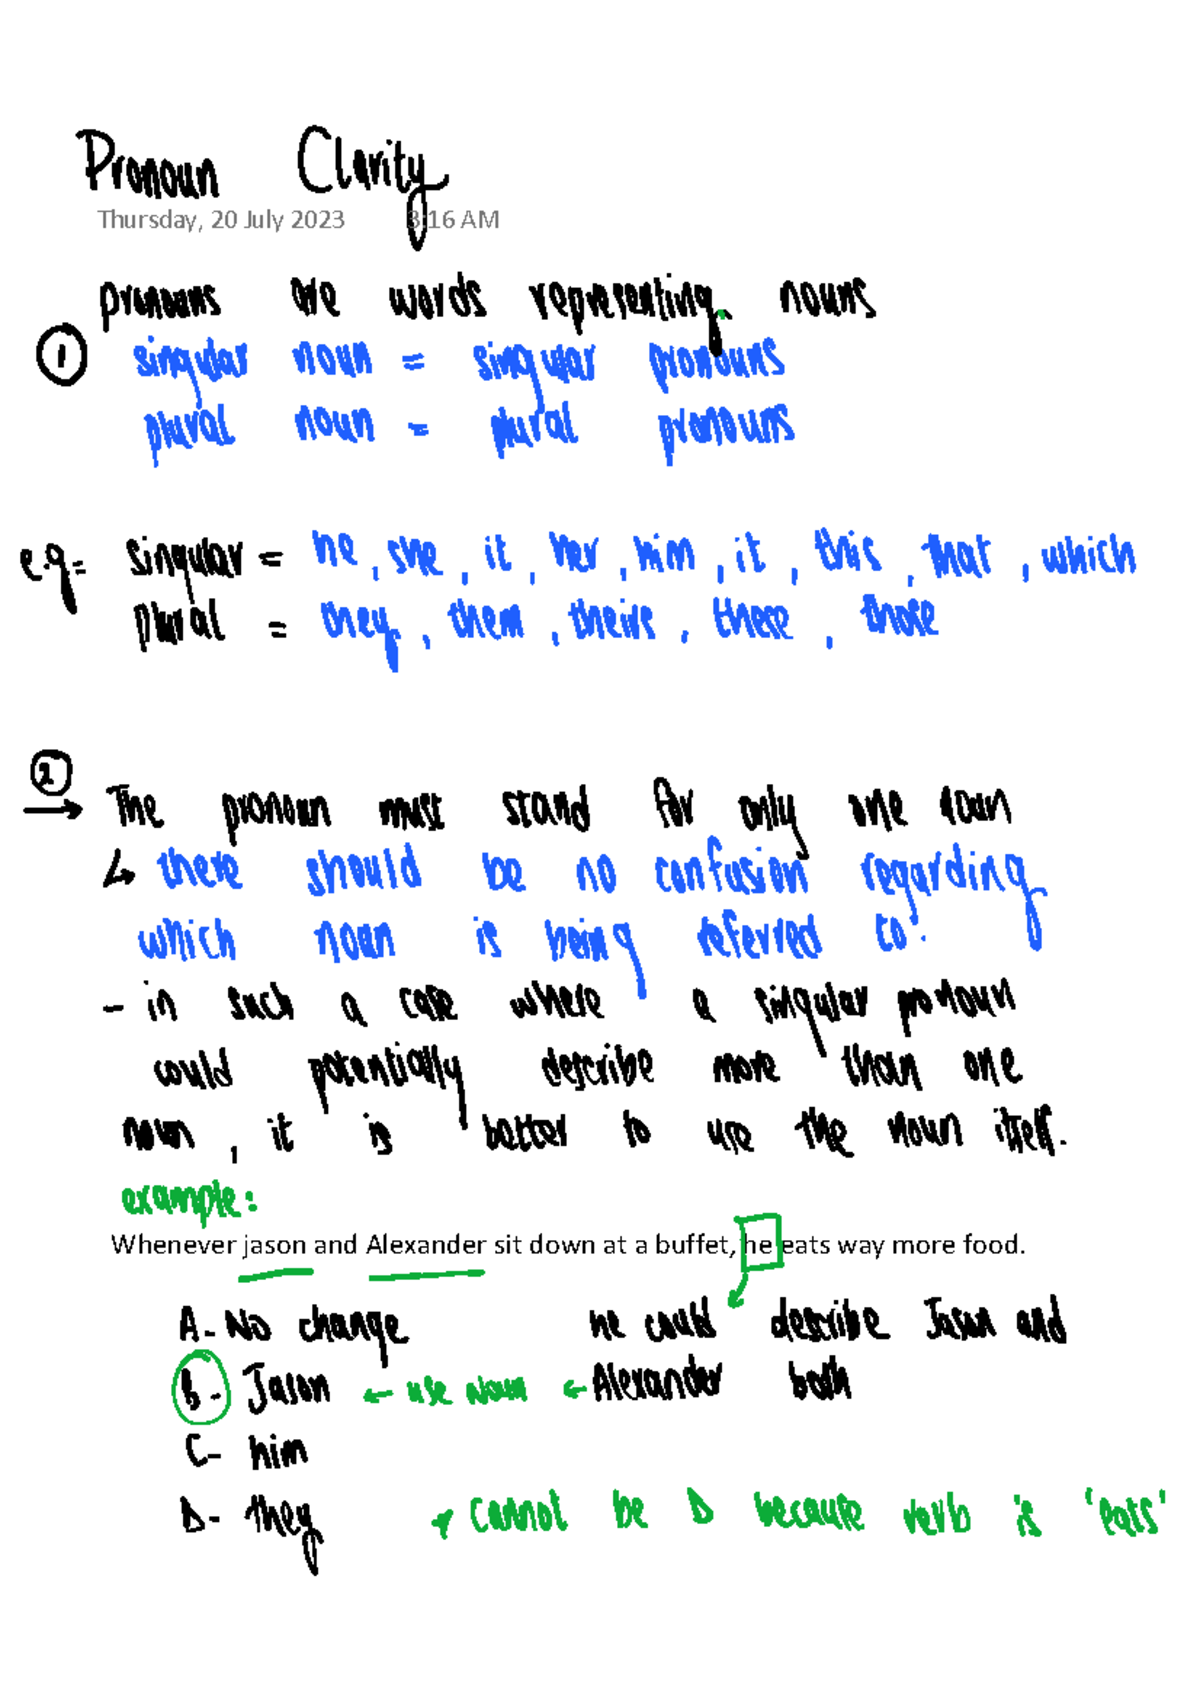 Pronoun Clarity
Thursday, 20 July 2023 3:16 AM
pronouns are words representing nouns
1 singular noun = singular pronouns
plural noun = plural pronouns
e.g= singular = he, she, it, her, him, it, this, that, which
plural = they, them, theirs, these, those
2
→ The pronoun must stand for only one noun
↳ there should be no confusion regarding
which noun is being referred to.
- in such a case where a singular pronoun
could potentially describe more than one
noun, it is better to use the noun itself.
example:
Whenever jason and Alexander sit down at a buffet, he eats way more food.
A- No change he could describe Jason and
B- Jason ← use noun ← Alexander both
C- him
D- they cannot be D because verb is 'eats'